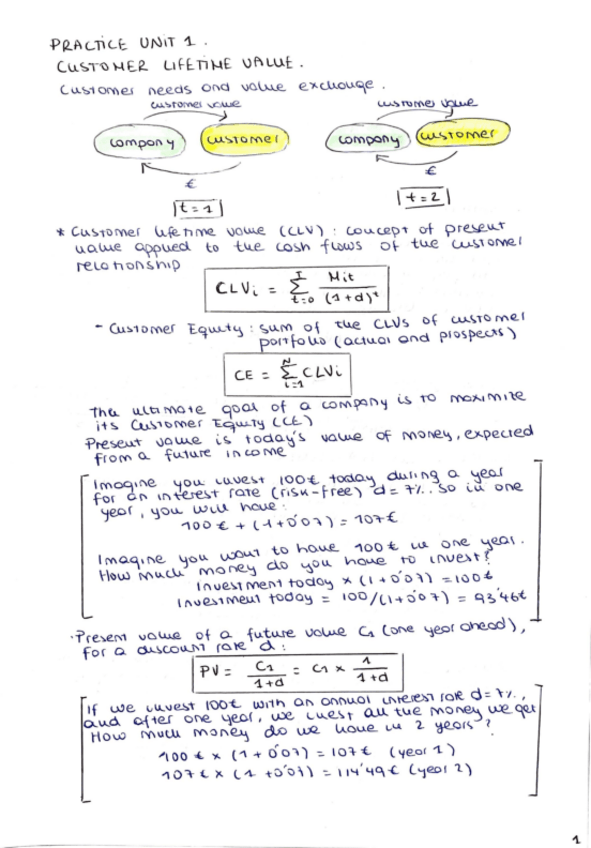 PRACTICE UNIT 1.
CUSTOMER LIFETIME VALUE.
Customer needs and value exchange.
customer value customer value
company customer company customer
€ €
t = 1 t = 2
* Customer lifetime value (CLV) : concept of present
value applied to the cash flows of the customer
relationship
CLVi = Σ T t=0 Mit / (1+d)^t
- Customer Equity : sum of the CLVs of customer
portfolio (actual and prospects)
CE = Σ N i=1 CLVi
The ultimate goal of a company is to maximize
its Customer Equity (CE)
Present value is today's value of money, expected
from a future income
Imagine you invest 100€ today during a year
for an interest rate (risk-free) d = 7%. So in one
year, you will have:
100€ + (1+0'07) = 107€
Imagine you want to have 100€ in one year.
How much money do you have to invest?
Investment today × (1+0'07) = 100€
Investment today = 100/(1+0'07) = 93'46€
·Present value of a future value C1 (one year ahead),
for a discount rate d:
PV = C1 / 1+d = C1 × 1 / 1+d
If we invest 100€ with an annual interest rate d = 7%,
and after one year, we invest all the money we get
How much money do we have in 2 years?
100€ × (1+0'07) = 107€ (year 1)
107€ × (1+0'07) = 114'49€ (year 2)
1